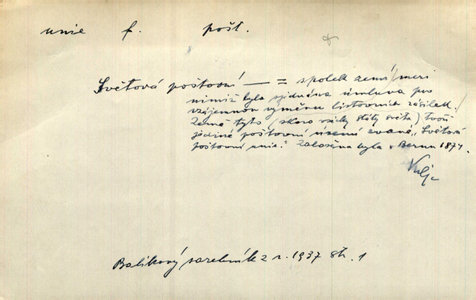 unie f. pošt.
Světová poštovní — = spolek zemí, mezi
nimiž byla sjednána úmluva pro
vzájemnou výměnu listovních zásilek.
Země tyto (skoro všecky státy světa) tvoří
jediné poštovní území zvané „Světová
poštovní unie“. Založena byla v Bernu 1874.
Balíkový sazebník z r. 1937 str. 1